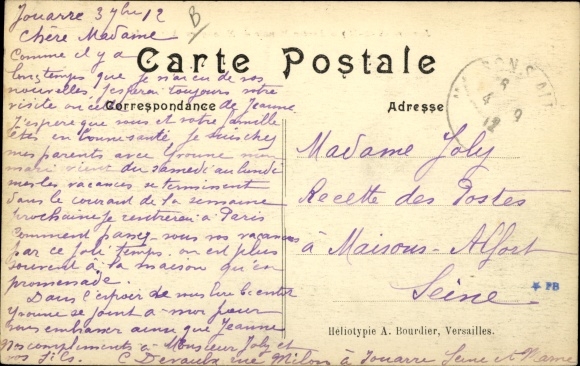 Jouarre 3 7bre 12
Chère Madame
Comme il y a
longtemps que je n'ai eu de vos
nouvelles, j'espérai toujours votre
visite ou celle de Jeanne
J'espère que vous et votre famille
êtes en bonne santé je suis chez
mes parents avec Yvonne mon
mari vient du samedi au lundi
mes vacances se terminent
dans le courant de la semaine
prochaine je rentrerai à Paris
Comment passez-vous vos vacances
par ce joli temps. on est plus
souvent à la maison qu'en
promenade.
Dans l'espoir de vous lire bientôt
Yvonne se joint à moi pour
vous embrasser ainsi que Jeanne
Nos compliments à Monsieur Joly et
vos fils. C Devaulx rue Milon à Jouarre Seine et Marne
B
Carte Postale
Correspondance
Adresse
4 9
12
Madame Joly
Recette des Postes
à Maisons-Alfort
Seine
* PB
Héliotypie A. Bourdier, Versailles.